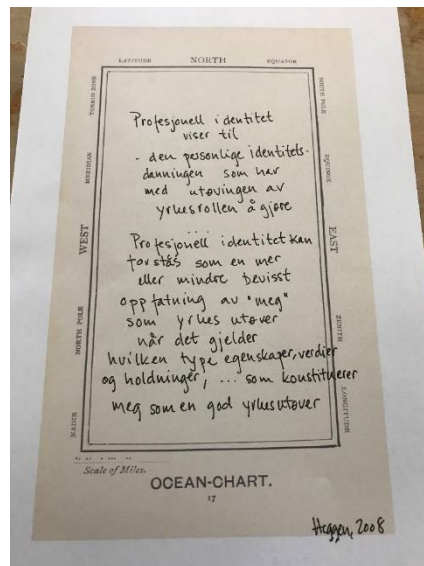 LATITUDE NORTH EQUATOR
TORRID ZONE
MERIDIAN
WEST
NORTH POLE
NADIR
SOUTH POLE
EQUINOX
EAST
ZENITH
LONGITUDE
Profesjonell identitet
viser til
- den personlige identitets-
danningen som har
med utøvingen av
yrkesrollen å gjøre
...
Profesjonell identitet kan
forstås som en mer
eller mindre bevisst
oppfatning av "meg"
som yrkesutøver
når det gjelder
hvilken type egenskaper, verdier
og holdninger, ... som konstituerer
meg som en god yrkesutøver
Scale of Miles.
OCEAN-CHART.
17
Heggen, 2008